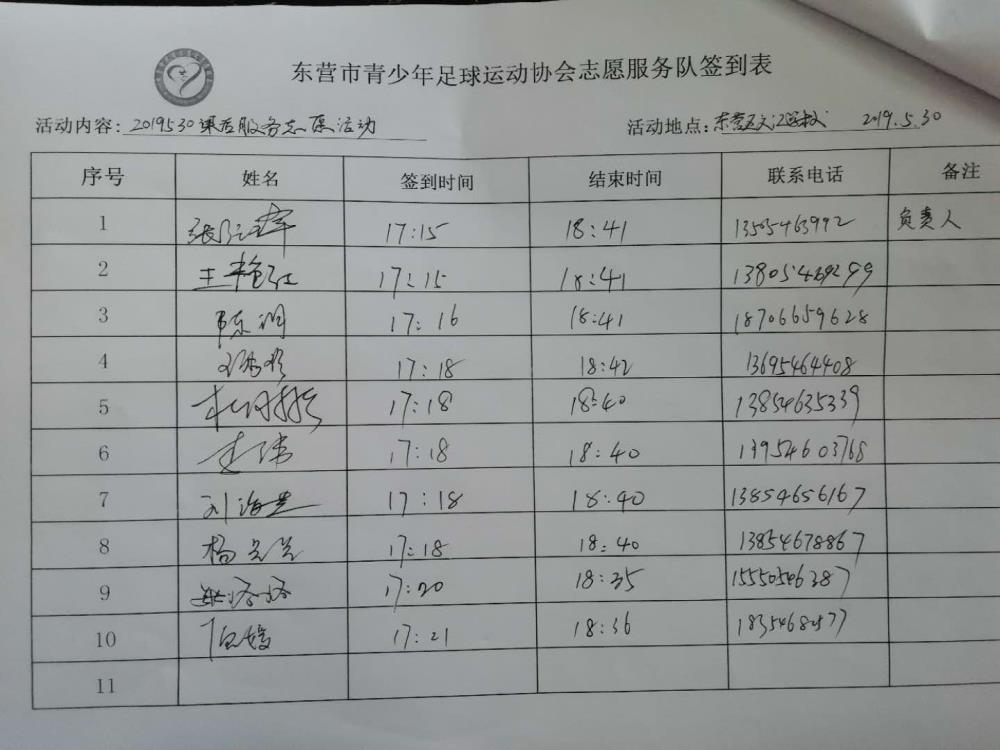 东营市青少年足球运动协会志愿服务队签到表
活动内容: 2019530课后服务志愿活动
活动地点: 东营区文汇学校 2019.5.30
序号 姓名 签到时间 结束时间 联系电话 备注
1 17:15 18:41 13505463992 负责人
2 王艳红 17:15 18:41
3 陈润 17:16 18:41 18706659628
4 17:18 18:42 13695464408
5 17:18 18:40 13854635339
6 17:18 18:40 13954603768
7 刘海量 17:18 18:40 13854656167
8 杨兰兰 17:18 18:40 13854678867
9 17:20 18:35 15550546387
10 17:21 18:36
11